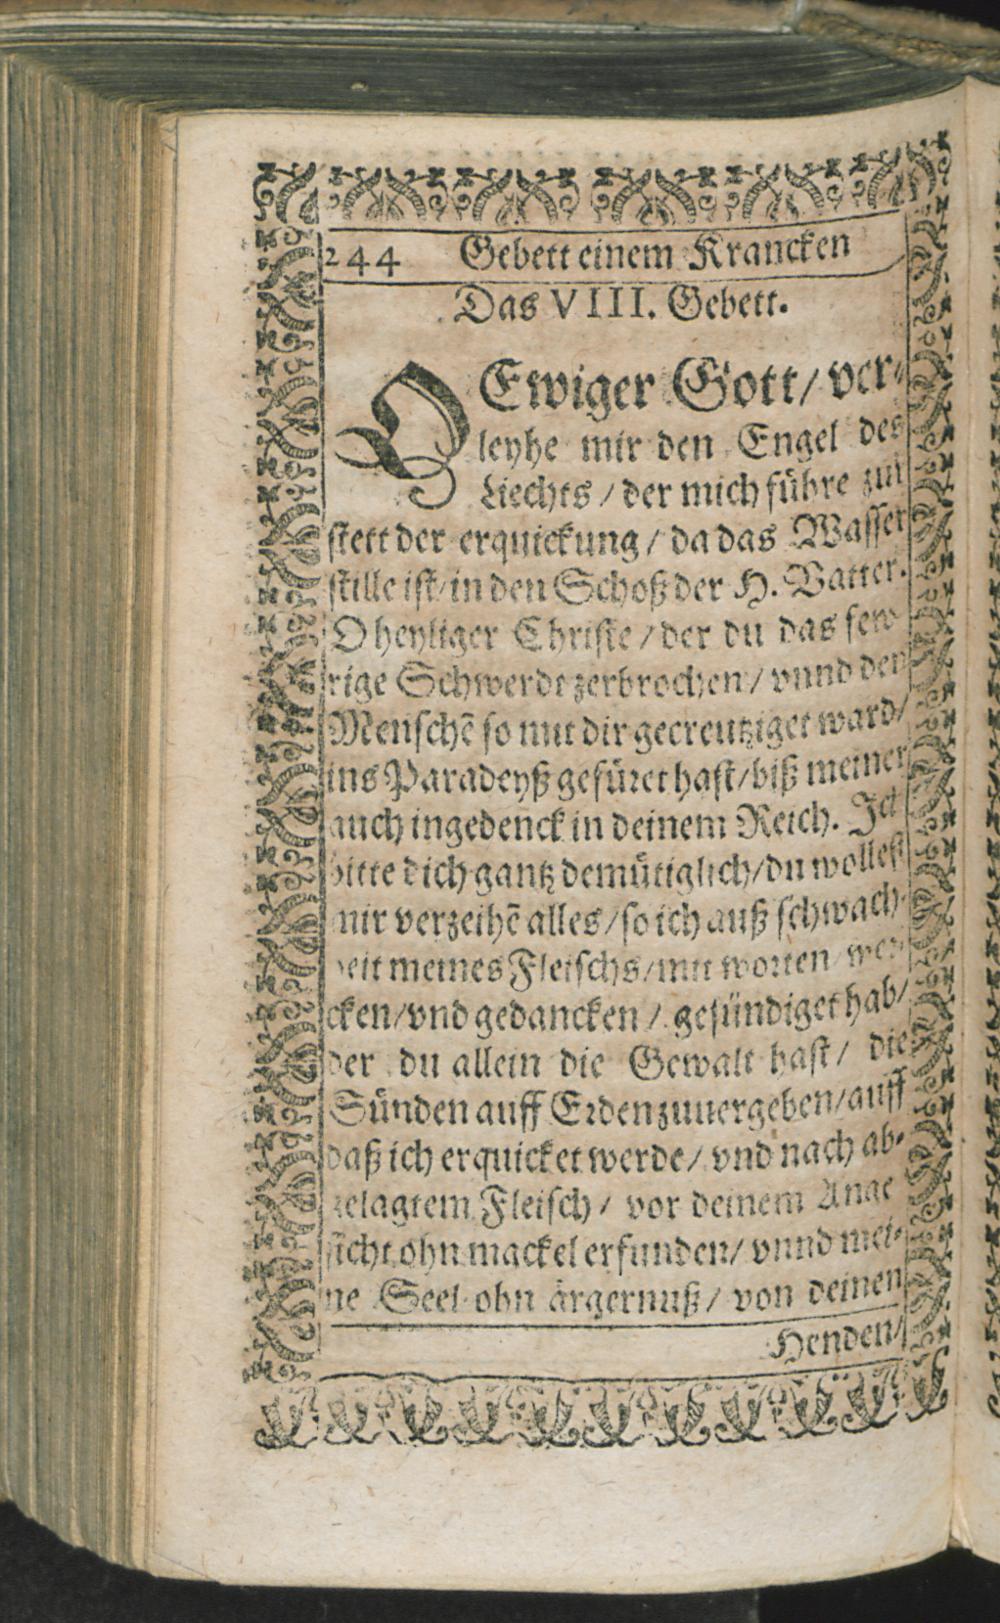 244 Gebett einem Krancken
Das VIII. Gebett.
O Ewiger Gott / ver-
leyhe mir den Engel des
Liechts / der mich führe zur
stett der erquickung / da das Wasser
stille ist / in den Schoß der H. Vatter.
O heyliger Christe / der du das few-
rige Schwerdt zerbrochen / vnnd den
Menschē so mit dir gecreutziget ward /
ins Paradeyß gefüret hast / biß meiner
auch ingedenck in deinem Reich. Ich
bitte dich gantz demütiglich / du wollest
mir verzeihē alles / so ich auß schwach-
heit meines Fleischs / mit worten wer-
cken / vnd gedancken / gesündiget hab /
der du allein die Gewalt hast / die
Sünden auff Erden zuuergeben / auff
daß ich erquicket werde / vnd nach ab-
gelagtem Fleisch / vor deinem Ange
sicht ohn mackel erfunden / vnnd mei-
ne Seel ohn ärgernuß / von deinen
Henden /